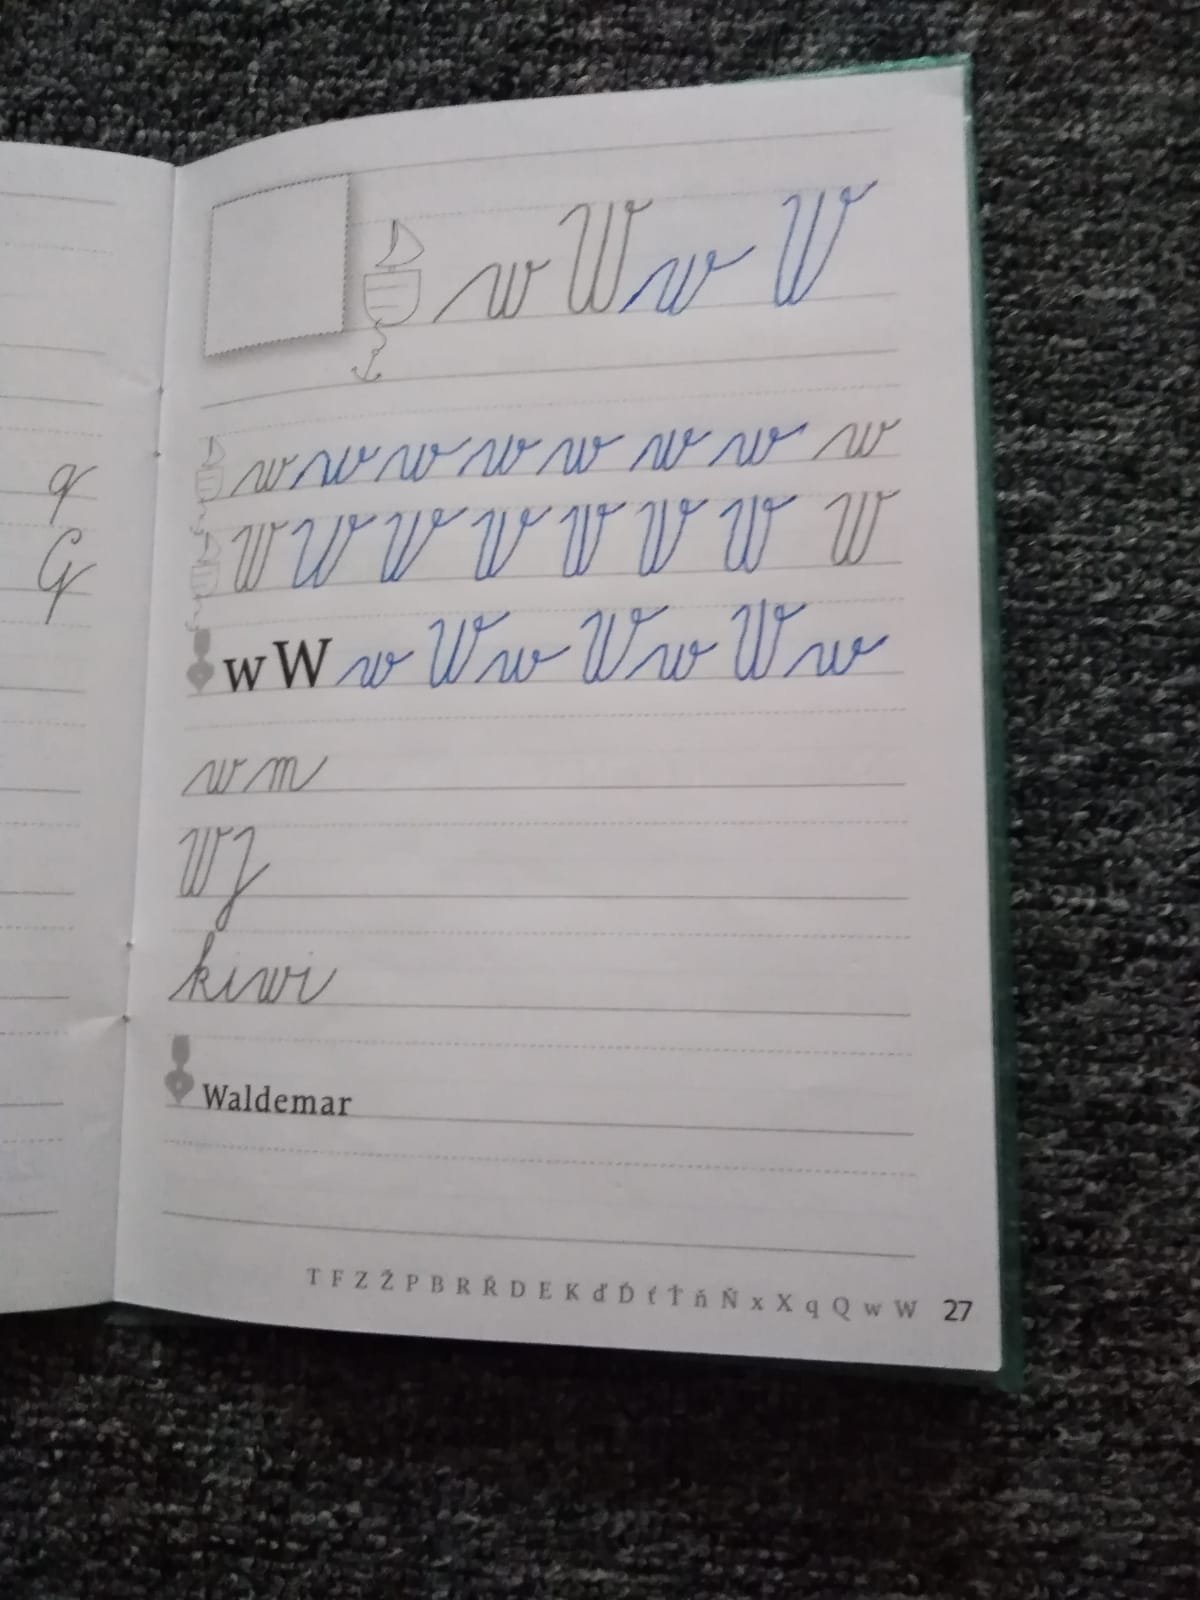 w W w W
w w w w w w w w w
q
W W W W W W W W
Q
w W w W w W w W w
w m
W J
kiwi
Waldemar
T F Z Ž P B R Ř D E K ď Ď ť Ť ň Ň x X q Q w W 27